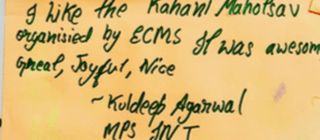 I like the Kahani Mahotsav
organisied by ECMS It was awesom
Great, Joyful, Nice
~ Kuldeep Agarwal
MPS JNT